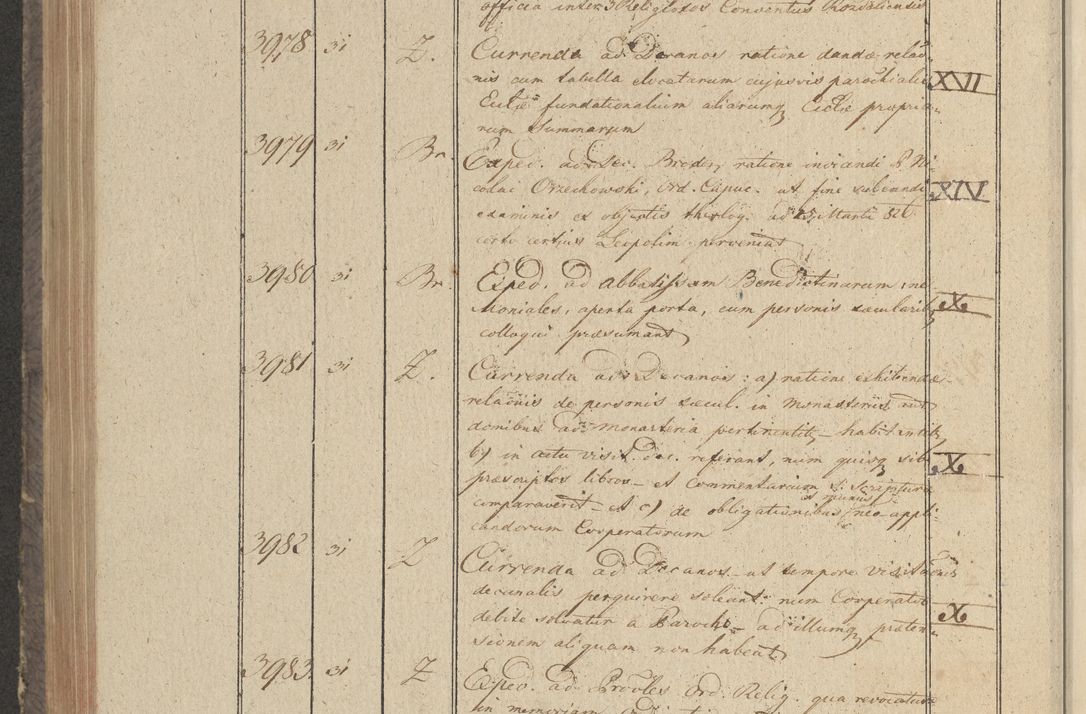 officia inter Religiosos Conventus
3978 31 Z. Currenda ad Decanos ratione dandæ relaõ-
nis cum tabella elocatarum cujusvis parochialis XVII
Ecclæ fundationalium aliarumq Ecclæ propria-
rum Summarum
3979 31 Br. Exped. ad ratione inviandi P. Ni-
colai Orzechowski, Ord. Capuc. ut fine subeundi XIV
examinis ex objectis theolog. ad Martii
certo certius Leopolim perveniat
3980 31 Br. Exped. ad Abbatissam Benedictinarum ne
Moniales, aperta porta, cum personis sæcularib X
colloqui præsumant
3981 31 Z. Currenda ad Decanos: a) ratione exhibendæ
relaõnis de personis sæcul. in monasteriis aut
domibus ad monasteria pertinentib, habitantib,
b) in actu visit. dec. referant, num quisq sibi X
præscriptos libros et Commentarium S. Scripturæ
comparaverit et c) de obligationibus et munus neo-appli-
candorum Cooperatorum
3982 31 Z Currenda ad Decanos ut tempore visitaõnis
decanalis perquirere soleant: num Cooperatori
debite solvatur a Parocho ad illumq præten- X
sionem aliquam non habeat
3983 31 Z Exped. ad Provles Ord. Relig. qua revocatur
in memoriam